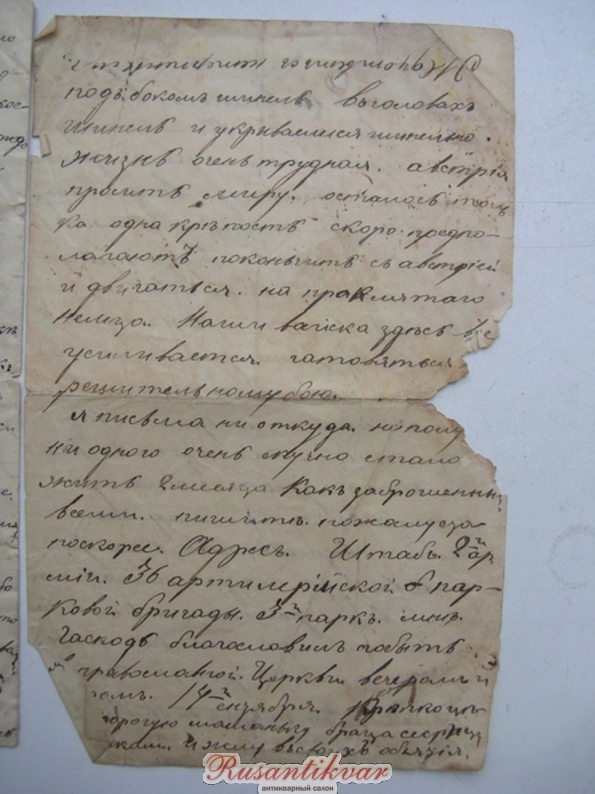 подъ бокомъ шинель въ головахъ
шинель и укрываемся шинелью.
жизнь очень трудная. австрія
просить миру. осталось толь
ка одна крѣпость скоро предпо-
лагаютъ поконьчить съ австріей
и двигаться. на праклятаго
немца. Наши вайска здесь
усиливается. гатовяться
решительному бою.
я письма ни откуда. не полу
ни одного очень скучно стало
жить 2 месяца какъ заброшенный
всеми. пишите. пожалуста
поскорее. Адресъ. Штабъ. 2й ар
міи. 36 артилерійской парковой
ковой бригады. 3й паркъ. мнѣ.
Гасподь благословилъ
православной. Церкви. вечеромъ и
14 ноября. Крепко
дорогую мамашу братца сестрицу
и жму въ своихъ объятія.
Rusantikvar
антикварный салон